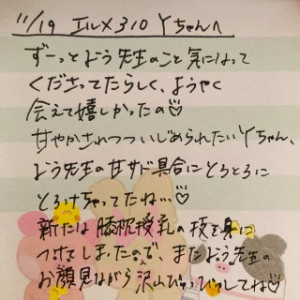 11/19 エルメ310 Yちゃんへ
ずーっとよう先生のこと気になって
くださってたらしく、ようやく
会えて嬉しかったの♡
甘やかされつついじめられたいYちゃん、
よう先生の甘サド具合にとろとろに
とろけちゃってたね…♡
新たな膝枕授乳の技を身に
つけてしまったので、またよう先生の
お顔見ながら沢山びゅっびゅしてね♡